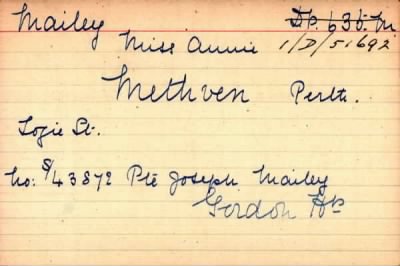 Mailey Dp. 636. M
Miss Annie 1/D/51692
Methven Perth.
Logie St.
No: S/43872 Pte Joseph Mailey
Gordon Hrs